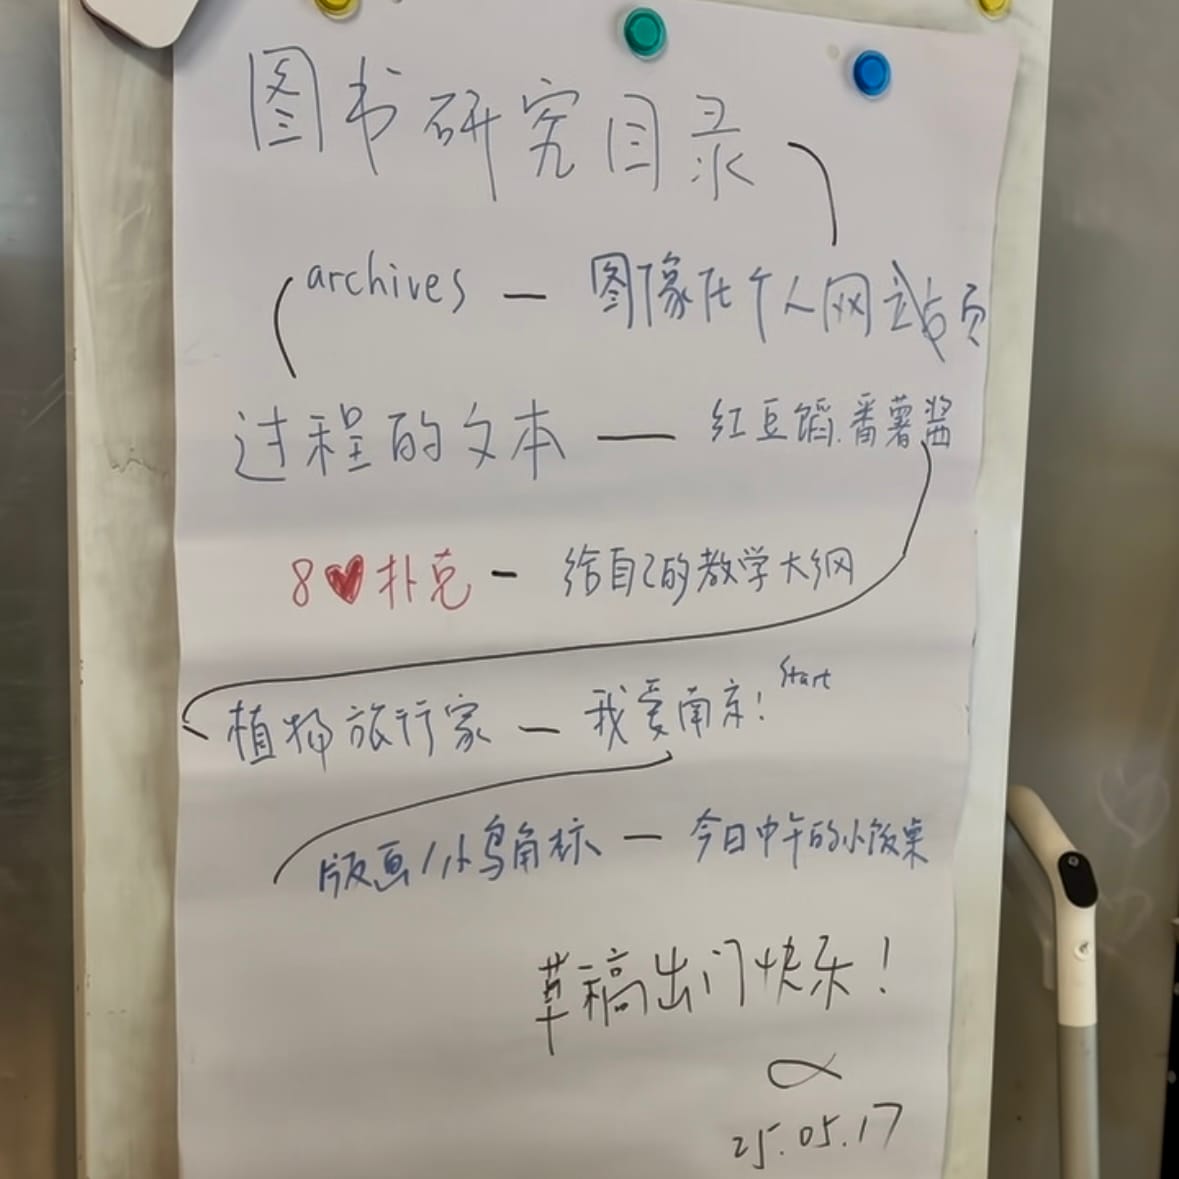 图书研究目录
archives — 图像在个人网站页
过程的文本 — 红豆馅.番薯酱
8♥扑克 - 给自己的教学大纲
植物旅行家 — 我爱南京! Start
版画/小鸟角标 — 今日中午的小饭桌
草稿出门快乐!
25.05.17